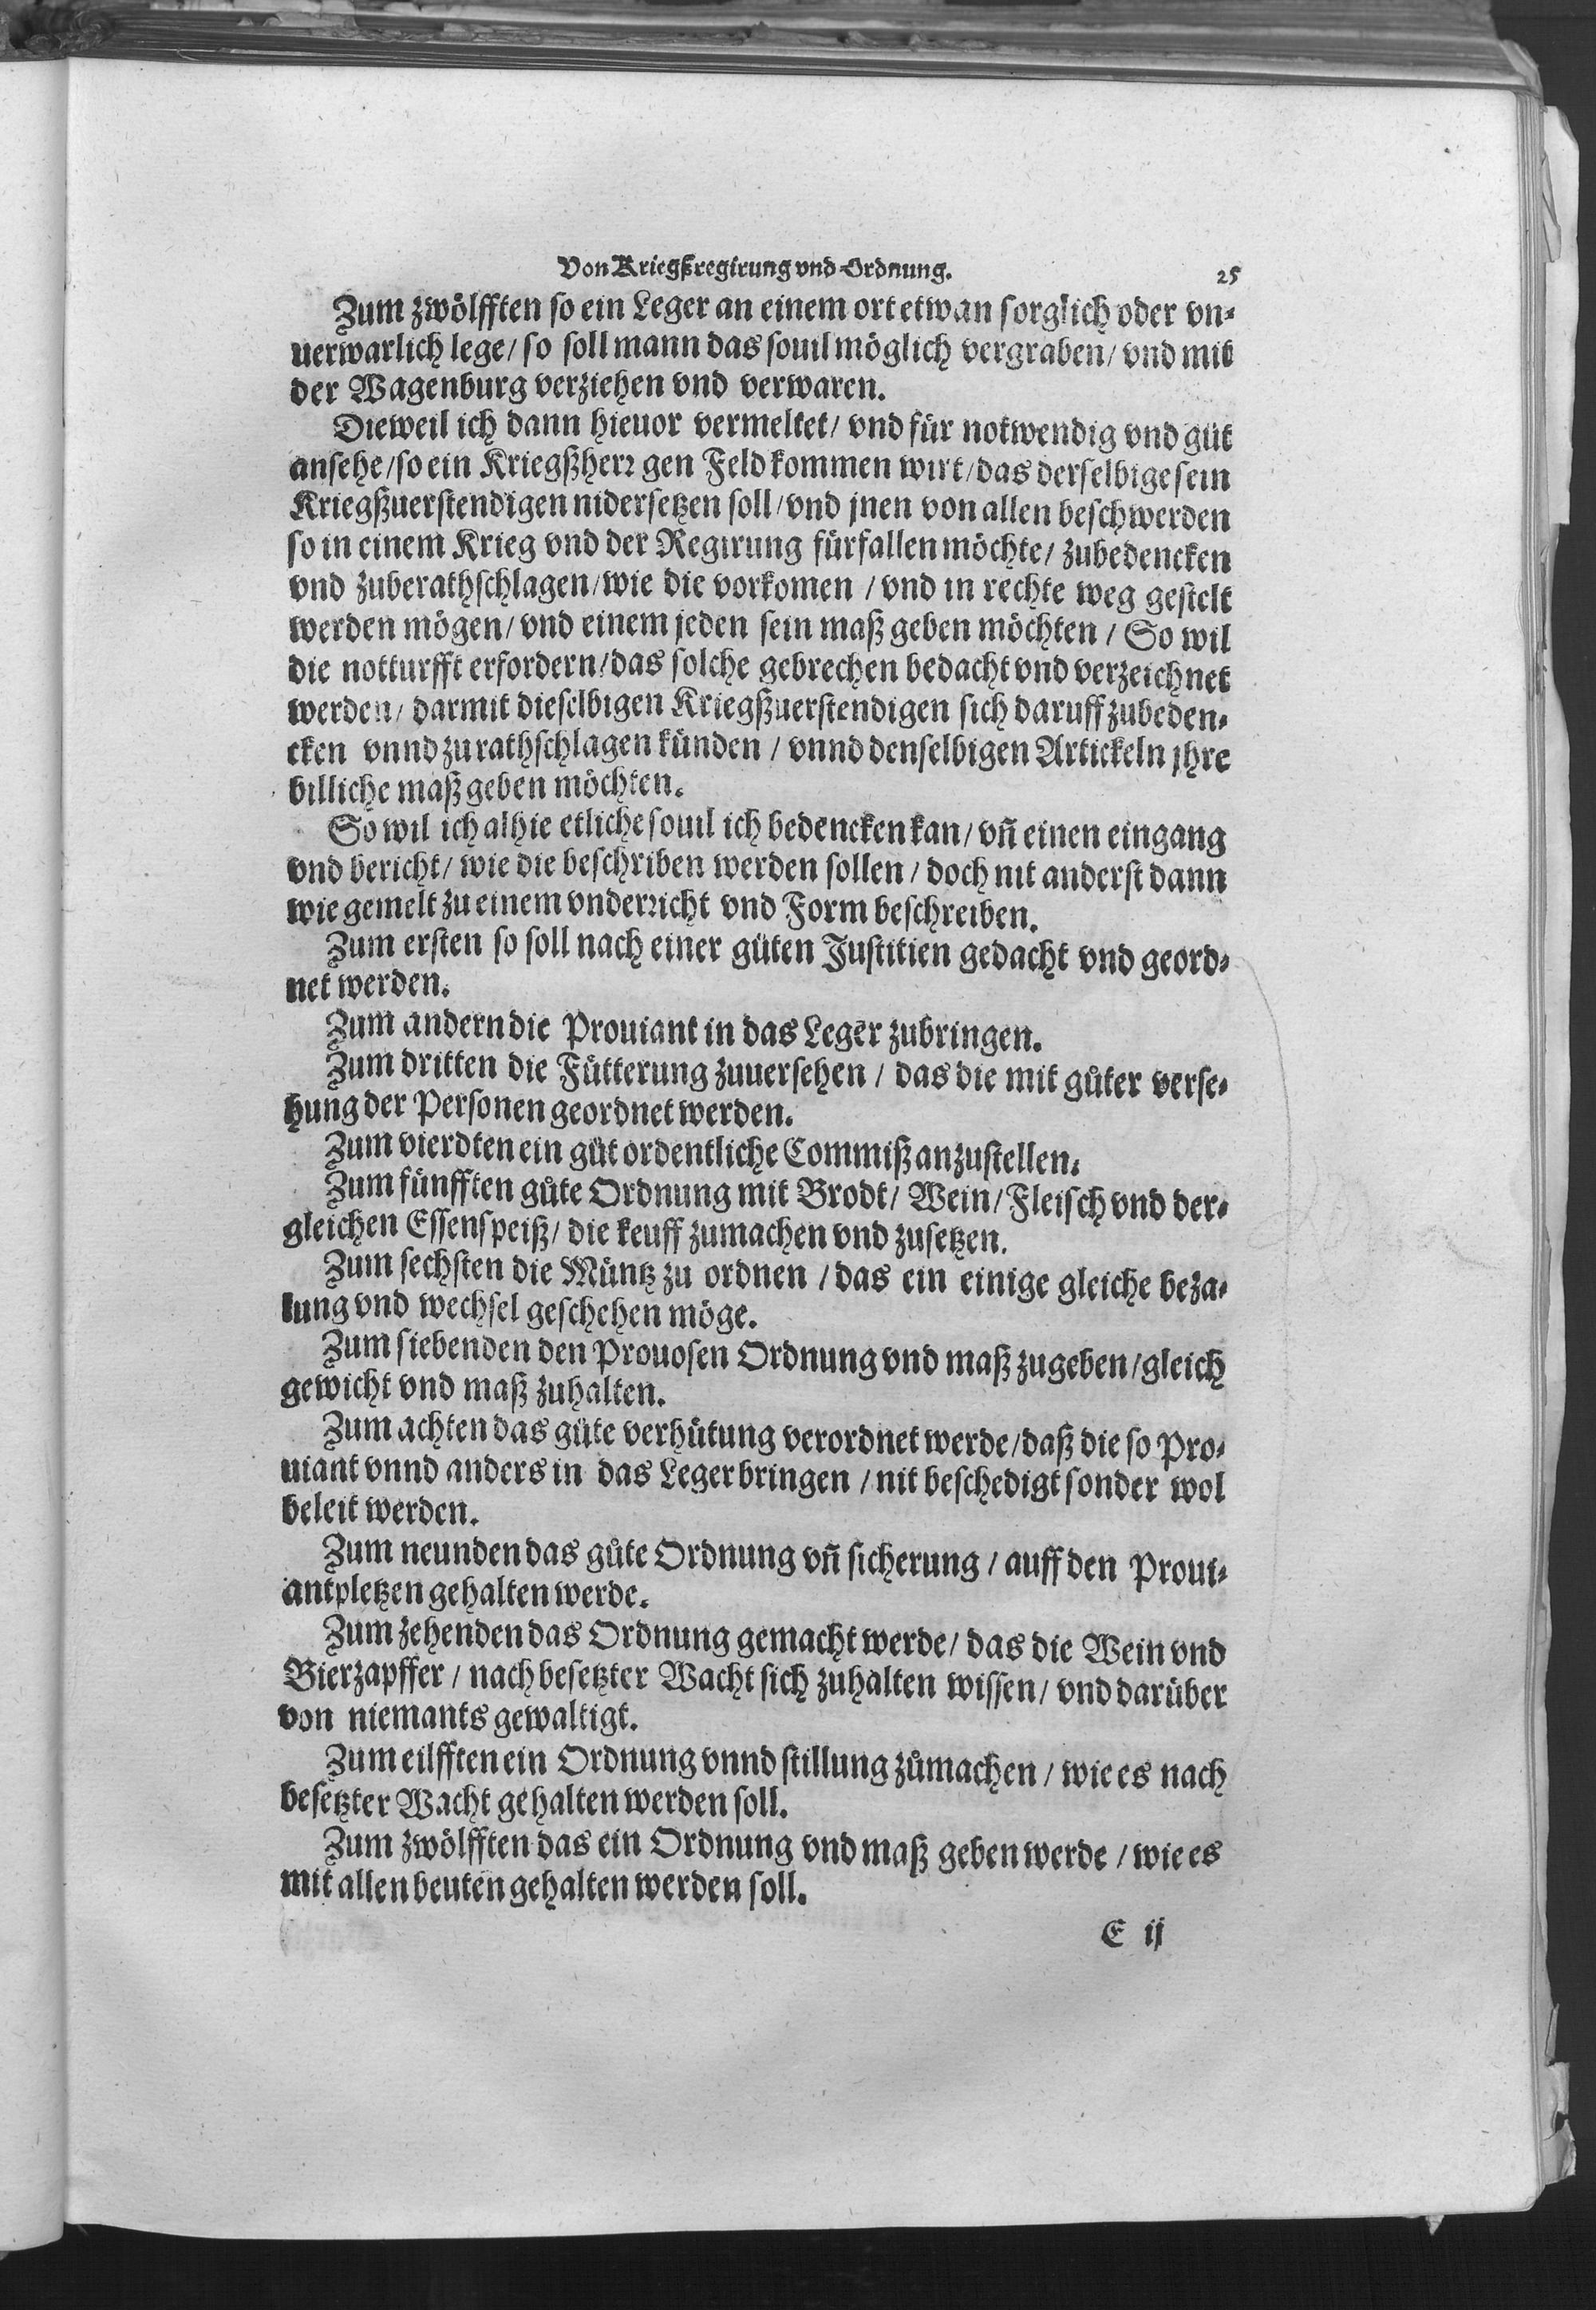 Von Kriegßregirung vnd Ordnung. 25
Zum zwölfften so ein Leger an einem ort etwan sorglich oder vn-
uerwarlich lege/ so soll mann das souil möglich vergraben/ vnd mit
der Wagenburg verziehen vnd verwaren.
Dieweil ich dann hieuor vermeltet/ vnd für notwendig vnd gůt
ansehe/ so ein Kriegßherr gen Feld kommen wirt/ das derselbige sein
Kriegßuerstendigen nidersetzen soll/ vnd jnen von allen beschwerden
so in einem Krieg vnd der Regirung fürfallen möchte/ zubedencken
vnd zuberathschlagen/ wie die vorkomen / vnd in rechte weg gestelt
werden mögen/ vnd einem jeden sein maß geben möchten / So wil
die notturfft erfordern/ das solche gebrechen bedacht vnd verzeichnet
werden/ darmit dieselbigen Kriegßuerstendigen sich daruff zubeden-
cken vnnd zu rathschlagen künden / vnnd denselbigen Artickeln jhre
billiche maß geben möchten.
So wil ich alhie etliche souil ich bedencken kan/ vñ einen eingang
vnd bericht/ wie die beschriben werden sollen / doch nit anderst dann
wie gemelt zu einem vnderricht vnd Form beschreiben.
Zum ersten so soll nach einer gůten Justitien gedacht vnd geord-
net werden.
Zum andern die Prouiant in das Leger zubringen.
Zum dritten die Fütterung zuuersehen / das die mit gůter verse-
hung der Personen geordnet werden.
Zum vierdten ein gůt ordentliche Commiß anzustellen.
Zum fünfften gůte Ordnung mit Brodt/ Wein/ Fleisch vnd der-
gleichen Essenspeiß/ die keuff zumachen vnd zusetzen.
Zum sechsten die Müntz zu ordnen / das ein einige gleiche beza-
lung vnd wechsel geschehen möge.
Zum siebenden den Prouosen Ordnung vnd maß zugeben/ gleich
gewicht vnd maß zuhalten.
Zum achten das gůte verhütung verordnet werde/ daß die so Pro-
uiant vnnd anders in das Leger bringen / nit beschedigt sonder wol
beleit werden.
Zum neunden das gůte Ordnung vñ sicherung / auff den Proui-
antpletzen gehalten werde.
Zum zehenden das Ordnung gemacht werde/ das die Wein vnd
Bierzapffer / nach besetzter Wacht sich zuhalten wissen/ vnd darüber
von niemants gewaltigt.
Zum eilfften ein Ordnung vnnd stillung zůmachen / wie es nach
besetzter Wacht gehalten werden soll.
Zum zwölfften das ein Ordnung vnd maß geben werde / wie es
mit allen beuten gehalten werden soll.
E ij